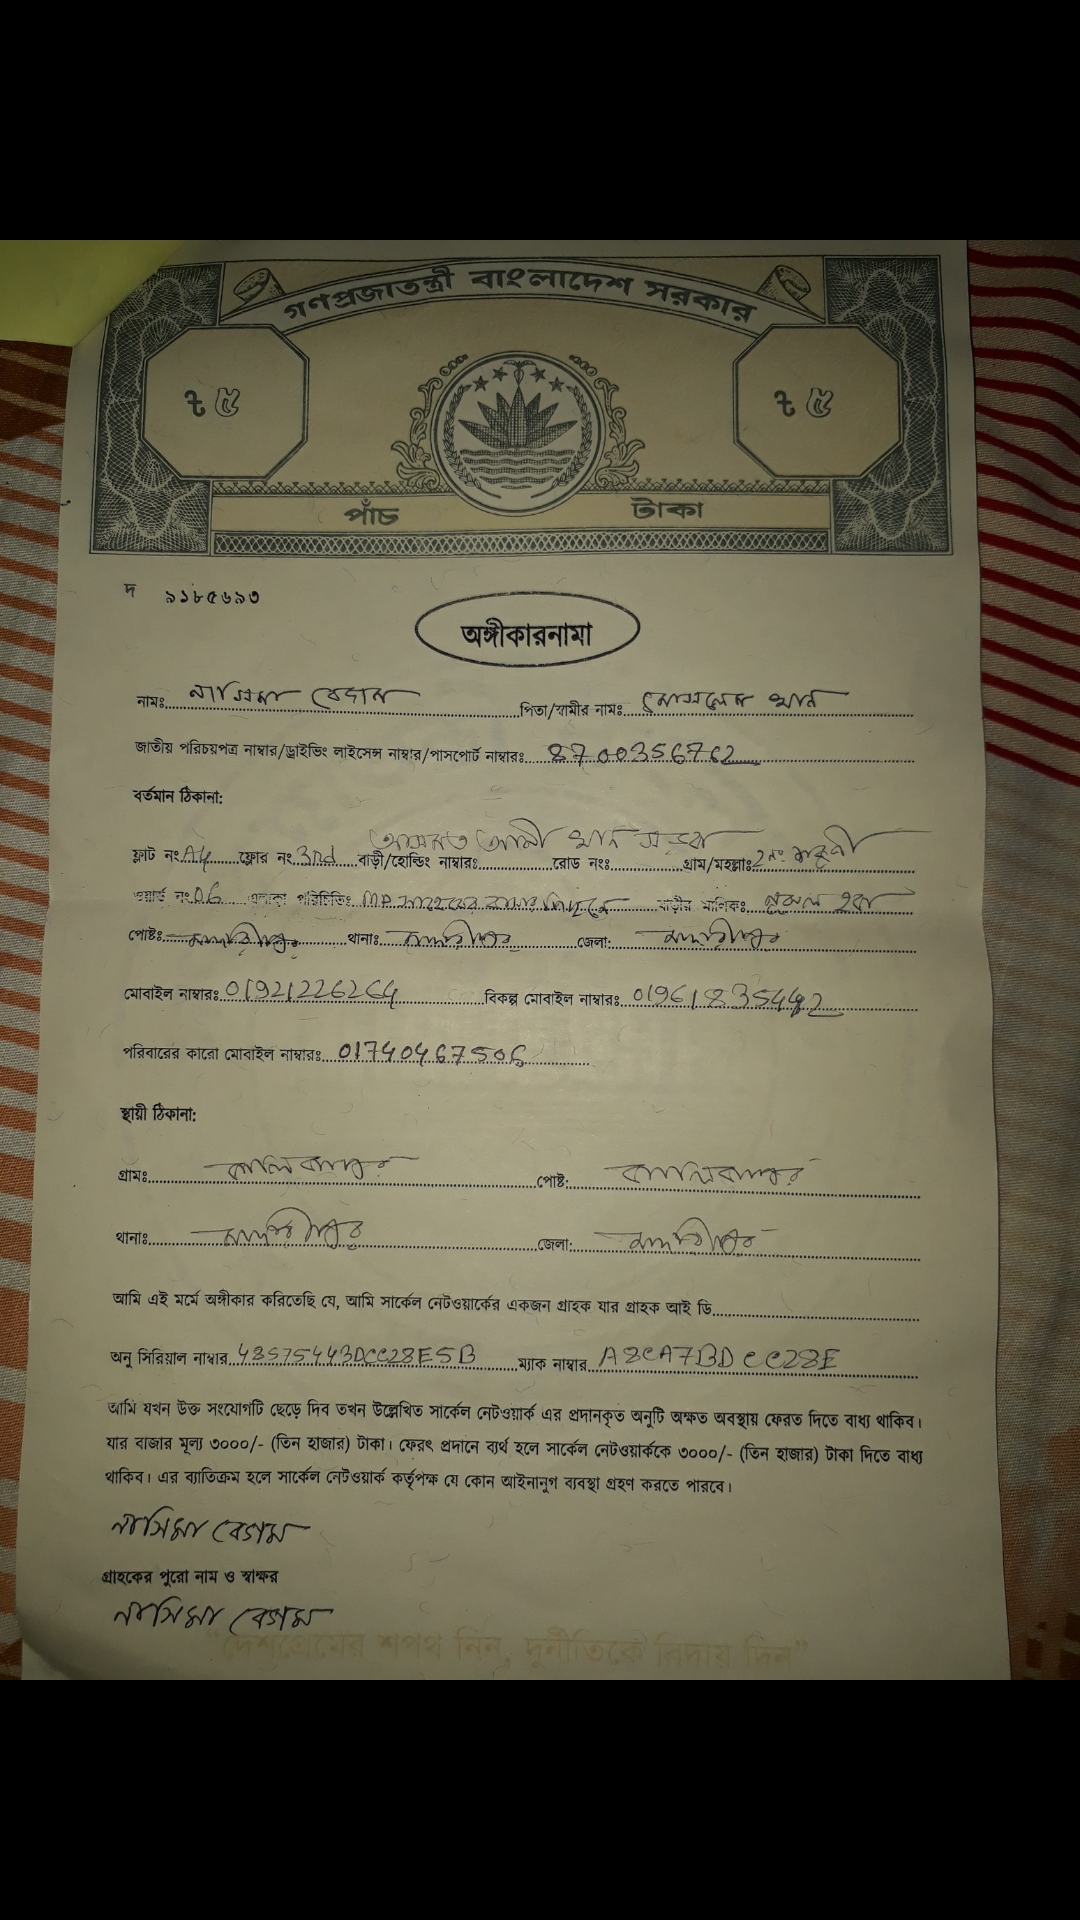 গণপ্রজাতন্ত্রী বাংলাদেশ সরকার
৳ ৫ ৳ ৫
পাঁচ টাকা
দ ৯১৮৫৬৯৩
অঙ্গীকারনামা
নামঃ নাসিমা বেগম পিতা/স্বামীর নামঃ মোসলেম খান
জাতীয় পরিচয়পত্র নাম্বার/ড্রাইভিং লাইসেন্স নাম্বার/পাসপোর্ট নাম্বারঃ 8700356762
বর্তমান ঠিকানা:
আসমত আলী খান সড়ক
ফ্লাট নং A4 ফ্লোর নং 3nd বাড়ী/হোল্ডিং নাম্বারঃ রোড নংঃ গ্রাম/মহল্লাঃ 2 নং শকুনী
ওয়ার্ড নং 06 এলাকা পরিচিতিঃ MP সাহেবের বাসার পিছনে বাড়ীর মালিকঃ নুরুল হক
পোষ্টঃ মাদারীপুর থানাঃ মাদারীপুর জেলা: মাদারীপুর
মোবাইল নাম্বারঃ 01921226264 বিকল্প মোবাইল নাম্বারঃ 01961835442
পরিবারের কারো মোবাইল নাম্বারঃ 01740467506
স্থায়ী ঠিকানা:
গ্রামঃ কালিকাপুর পোষ্ট: কালিকাপুর
থানাঃ মাদারীপুর জেলা: মাদারীপুর
আমি এই মর্মে অঙ্গীকার করিতেছি যে, আমি সার্কেল নেটওয়ার্কের একজন গ্রাহক যার গ্রাহক আই ডি
অনু সিরিয়াল নাম্বার 48575443DCC28E5B ম্যাক নাম্বার A8CA7BDCC28E
আমি যখন উক্ত সংযোগটি ছেড়ে দিব তখন উল্লেখিত সার্কেল নেটওয়ার্ক এর প্রদানকৃত অনুটি অক্ষত অবস্থায় ফেরত দিতে বাধ্য থাকিব।
যার বাজার মূল্য ৩০০০/- (তিন হাজার) টাকা। ফেরৎ প্রদানে ব্যর্থ হলে সার্কেল নেটওয়ার্ককে ৩০০০/- (তিন হাজার) টাকা দিতে বাধ্য
থাকিব। এর ব্যাতিক্রম হলে সার্কেল নেটওয়ার্ক কর্তৃপক্ষ যে কোন আইনানুগ ব্যবস্থা গ্রহণ করতে পারবে।
নাসিমা বেগম
গ্রাহকের পুরো নাম ও স্বাক্ষর
নাসিমা বেগম
"দেশপ্রেমের শপথ নিন, দুর্নীতিকে বিদায় দিন"